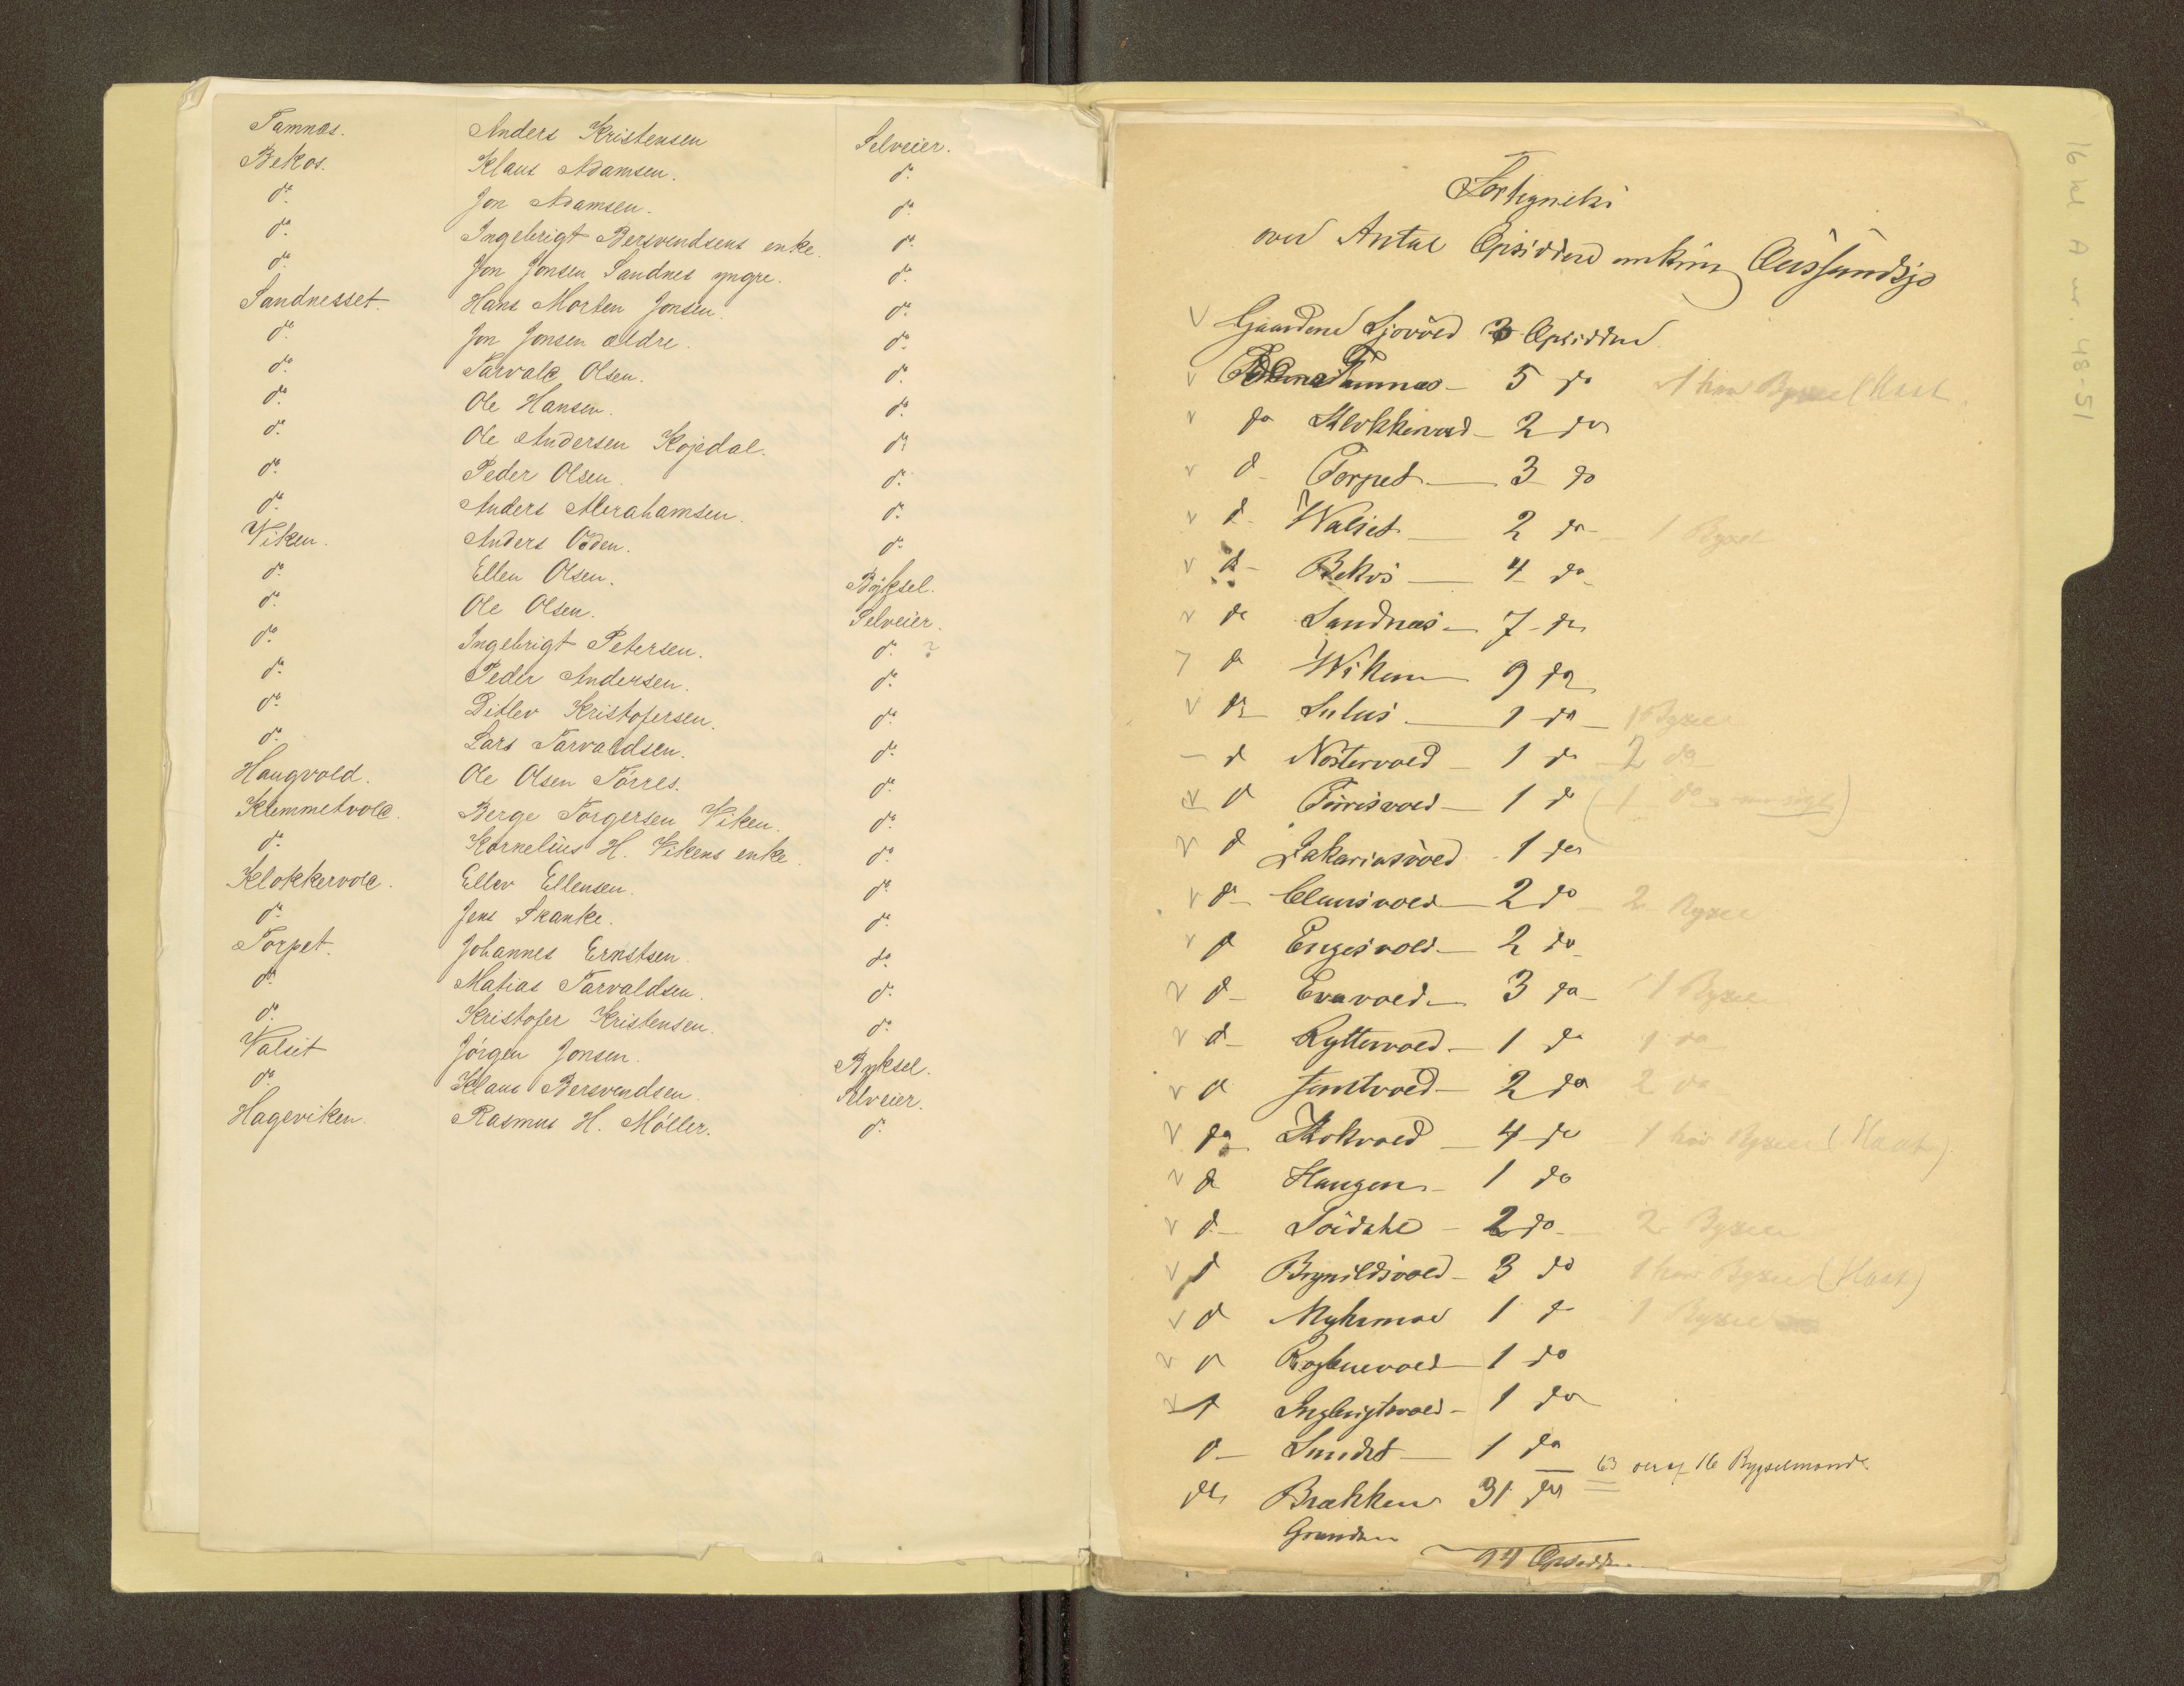 Tamnes. Anders Kristensen Selveier.
Bekos. Klaus Adamsen. do.
do. Jon Adamsen. do.
do. Ingebrigt Bersvendsens enke. do.
do. Jon Jonsen Sandnes yngre. do.
Sandnesset. Hans Morten Jonsen. do.
do. Jon Jonsen ældre. do.
do. Tarvald Olsen. do.
do. Ole Hansen. do.
do. Ole Andersen Kojedal. do.
do. Peder Olsen. do.
do. Anders Abrahamsen. do.
Viken. Anders Odden. do.
do. Ellen Olsen. Byksel.
do. Ole Olsen. Selveier.
do. Ingebrigt Petersen. do. ?
do. Peder Andersen. do.
do. Ditlev Kristofersen. do.
do. Lars Tarvaldsen. do.
Haugvold. Ole Olsen Törres. do.
Klemmetvold. Berge Torgersen Viken. do.
do. Kornelius H. Vikens enke. do.
Klokkervold. Ellev Ellensen. do.
do. Jens Skanke. do.
Torpet. Johannes Ernstsen. do.
do. Matias Tarvaldsen. do.
do. Kristofer Kristensen. do.
Valset Jörgen Jonsen. Byksel.
do. Klaus Bersvendsen. Selveier.
Hageviken. Rasmus H. Möller. do.
Fortegnelse
over Antal Opsiddere omkring Aursundsjø
Gaardene Sjovold Opsiddere
Tamnæs - 5 do 1 har Bygsel (Slaat)
do Klokkervold - 2 do
do Torpet - 3 do
do Walset - 2 do - 1 Bygsel
do Bekos - 4 do
do Sandnæs - 7 do
do Wiken - 9 do
do - 1 do - 1 Bygsel
do Nostervold - 1 do - 2 do
do - 1 do (1 do
do Zakariasvold - 1 do
do Clausvold - 2 do - 2 Bygsel
do Engesvold - 2 do
do Evavold - 3 do - 1 Bygsel
do Ryttervold - 1 do 1 do
do Jemtvold - 2 do 2 do
do Kokvold - 4 do 1 har Bygsel (Slaat)
do Haugen - 1 do
do - 2 do - 2 Bygsel
do Brynildsvold - 3 do 1 har Bygsel (Slaat)
do Myhrmoe 1 do 1 Bygsel
do - 1 do
do Ingebrigtsvold - 1 do
do Sundet - 1 do 63 deraf 16 Bygselmænd.
do Brækken 31 do
Grænden
94 Opsiddere
16 kl A nr. 48-51